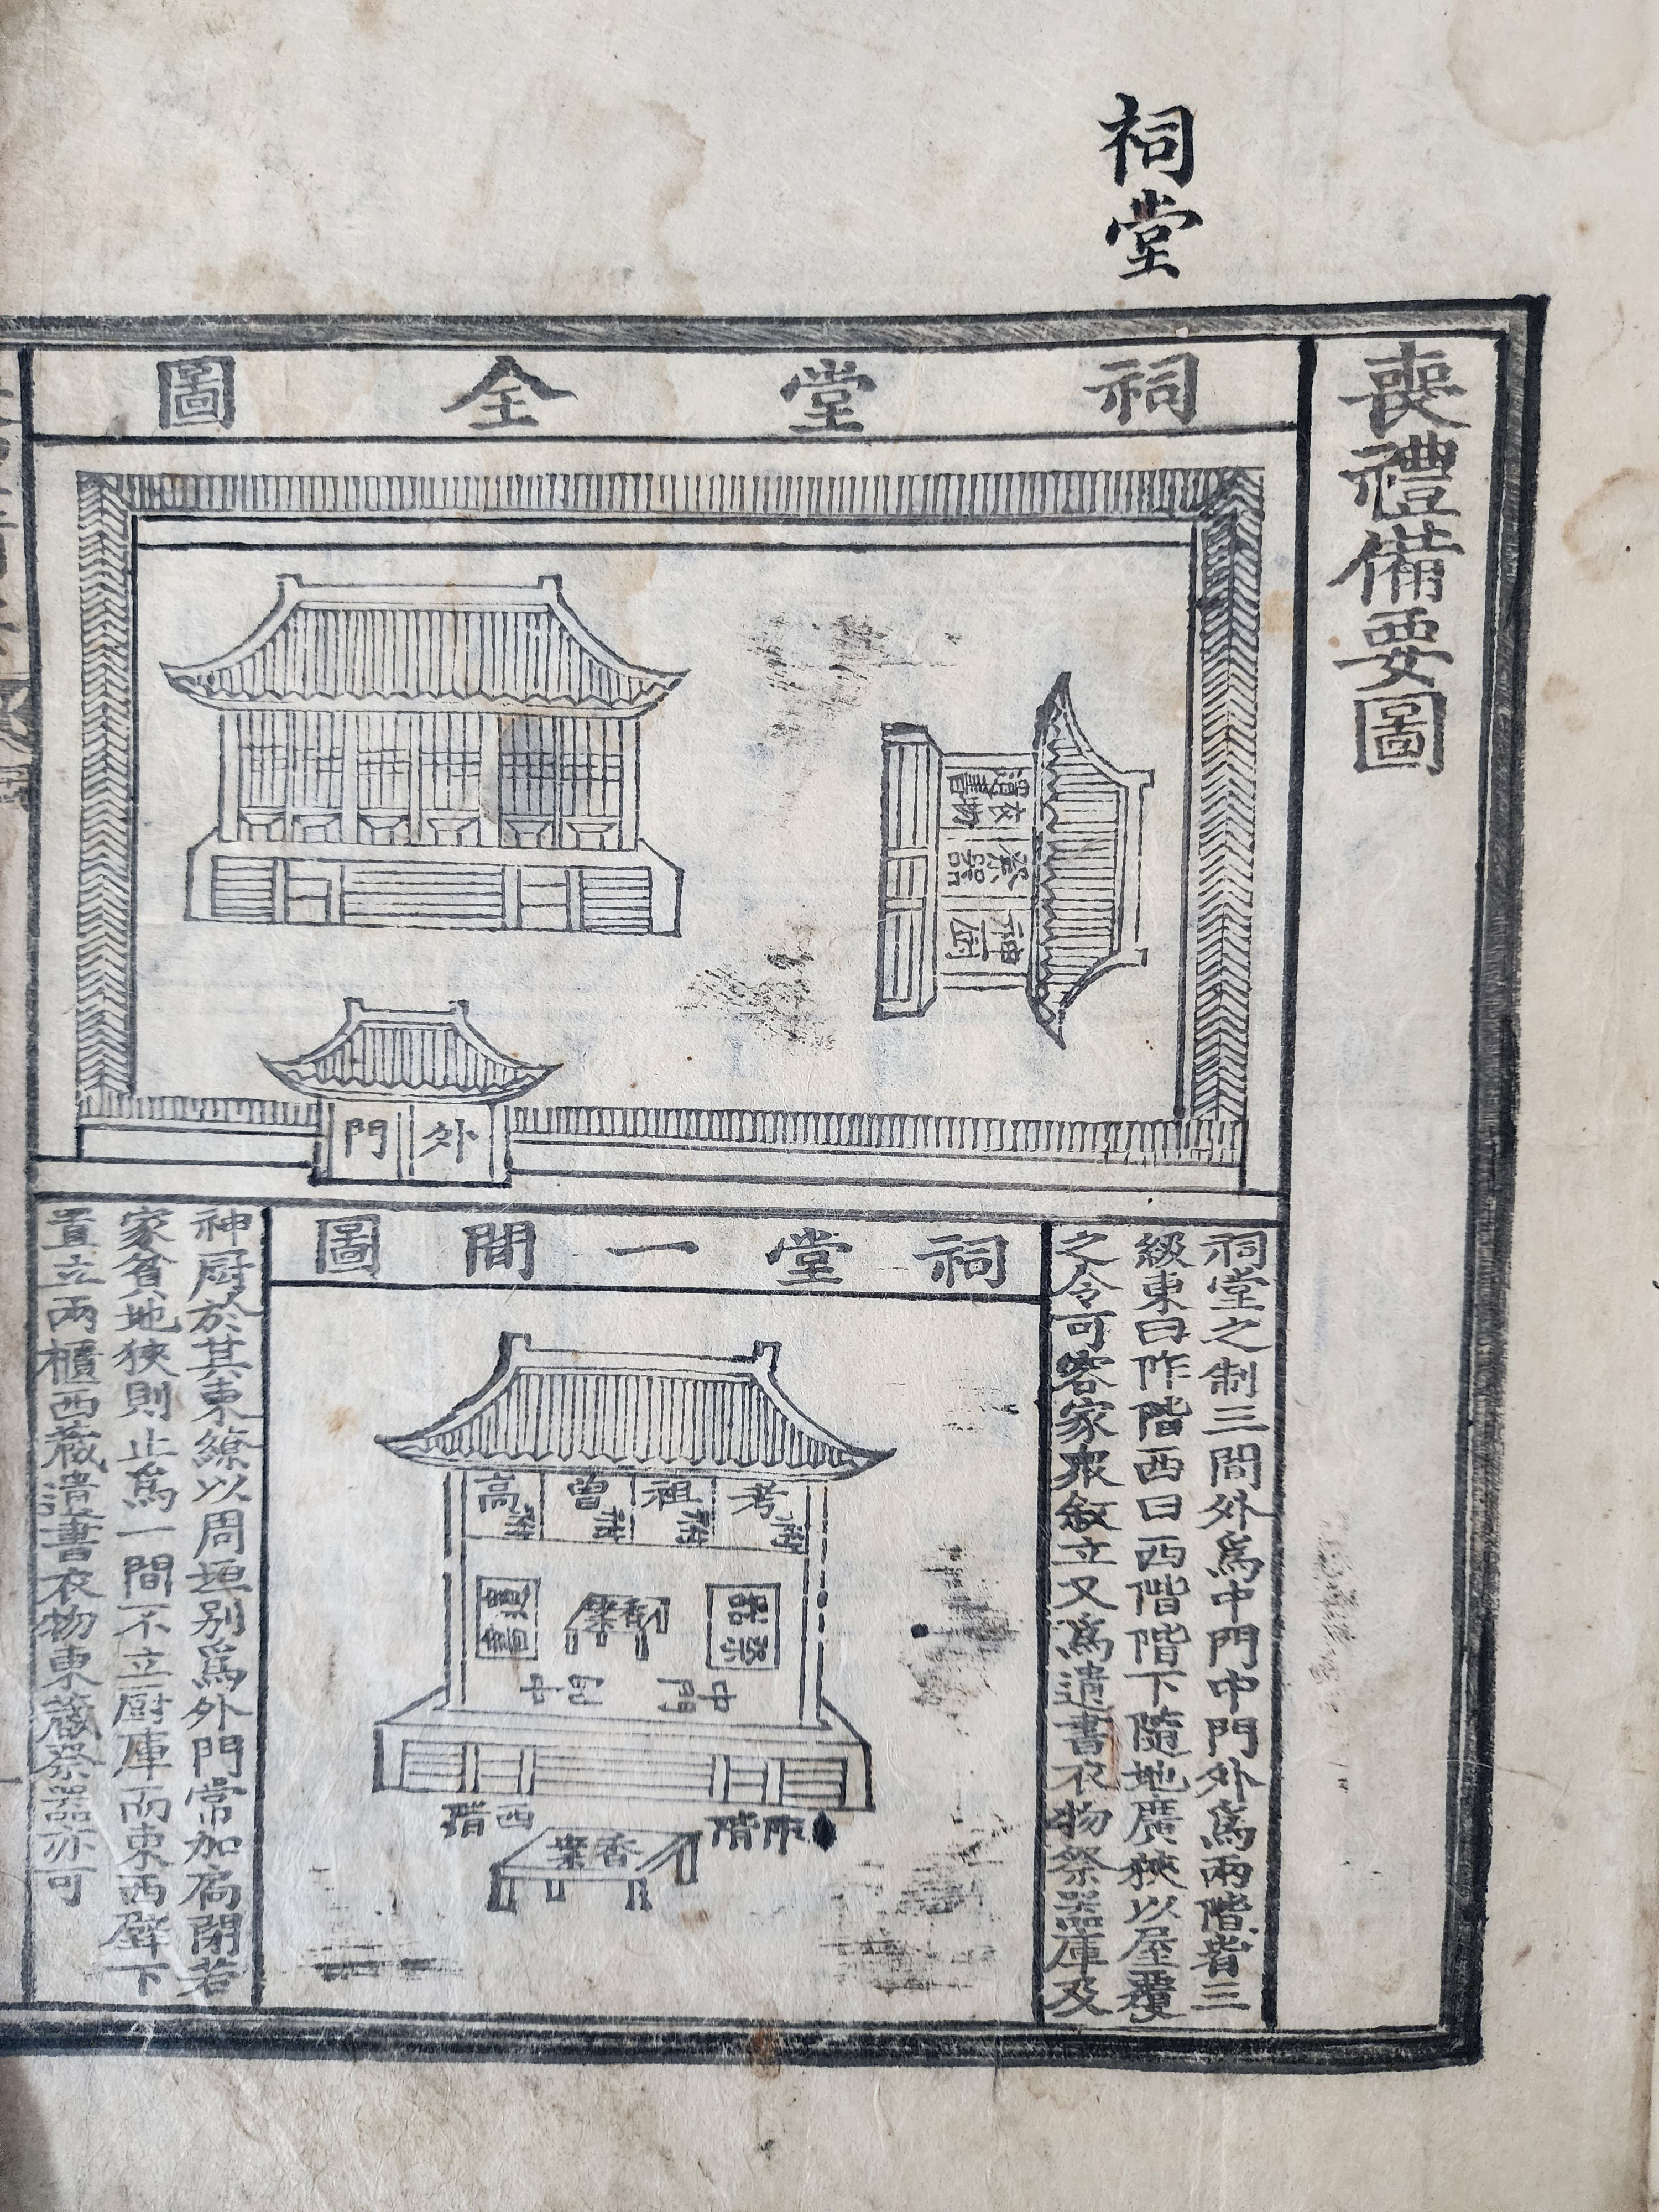 祠堂
喪禮備要圖
祠堂全圖
遺書衣物
祭器
神厨
外門
祠堂之制三間外爲中門中門外爲兩階皆三
級東曰阼階西曰西階階下隨地廣狹以屋覆
之令可容家衆敘立又爲遺書衣物祭器庫及
祠堂一間圖
考祔
祖祔
曾祔
高祔
祭器
香案
中門
阼階
西階
香案
神厨於其東繚以周垣別爲外門常加扃閉若
家貧地狹則止爲一間不立厨庫而東西壁下
置立兩櫃西藏遺書衣物東藏祭器亦可